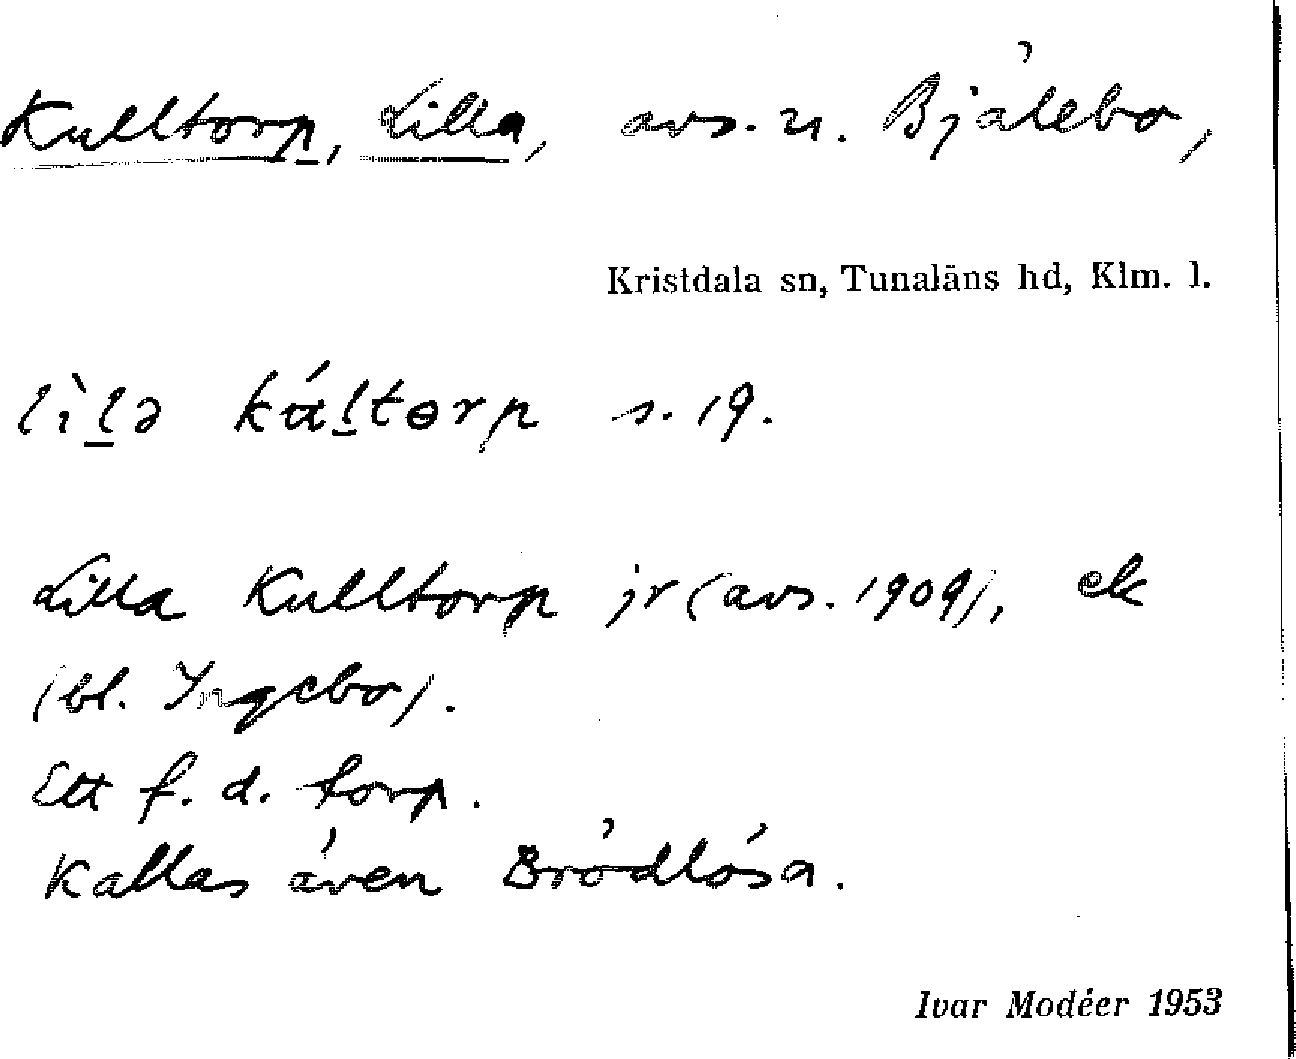 Kulltorp, Lilla, avs. u. Bjälebo,
Kristdala sn, Tunaläns hd, Klm. l.
s. 19.
Lilla Kulltorp jr (avs. 1909), ek
(bl. Ingebo).
Ett f. d. torp.
Kallas även Brödlösa.
Ivar Modéer 1953